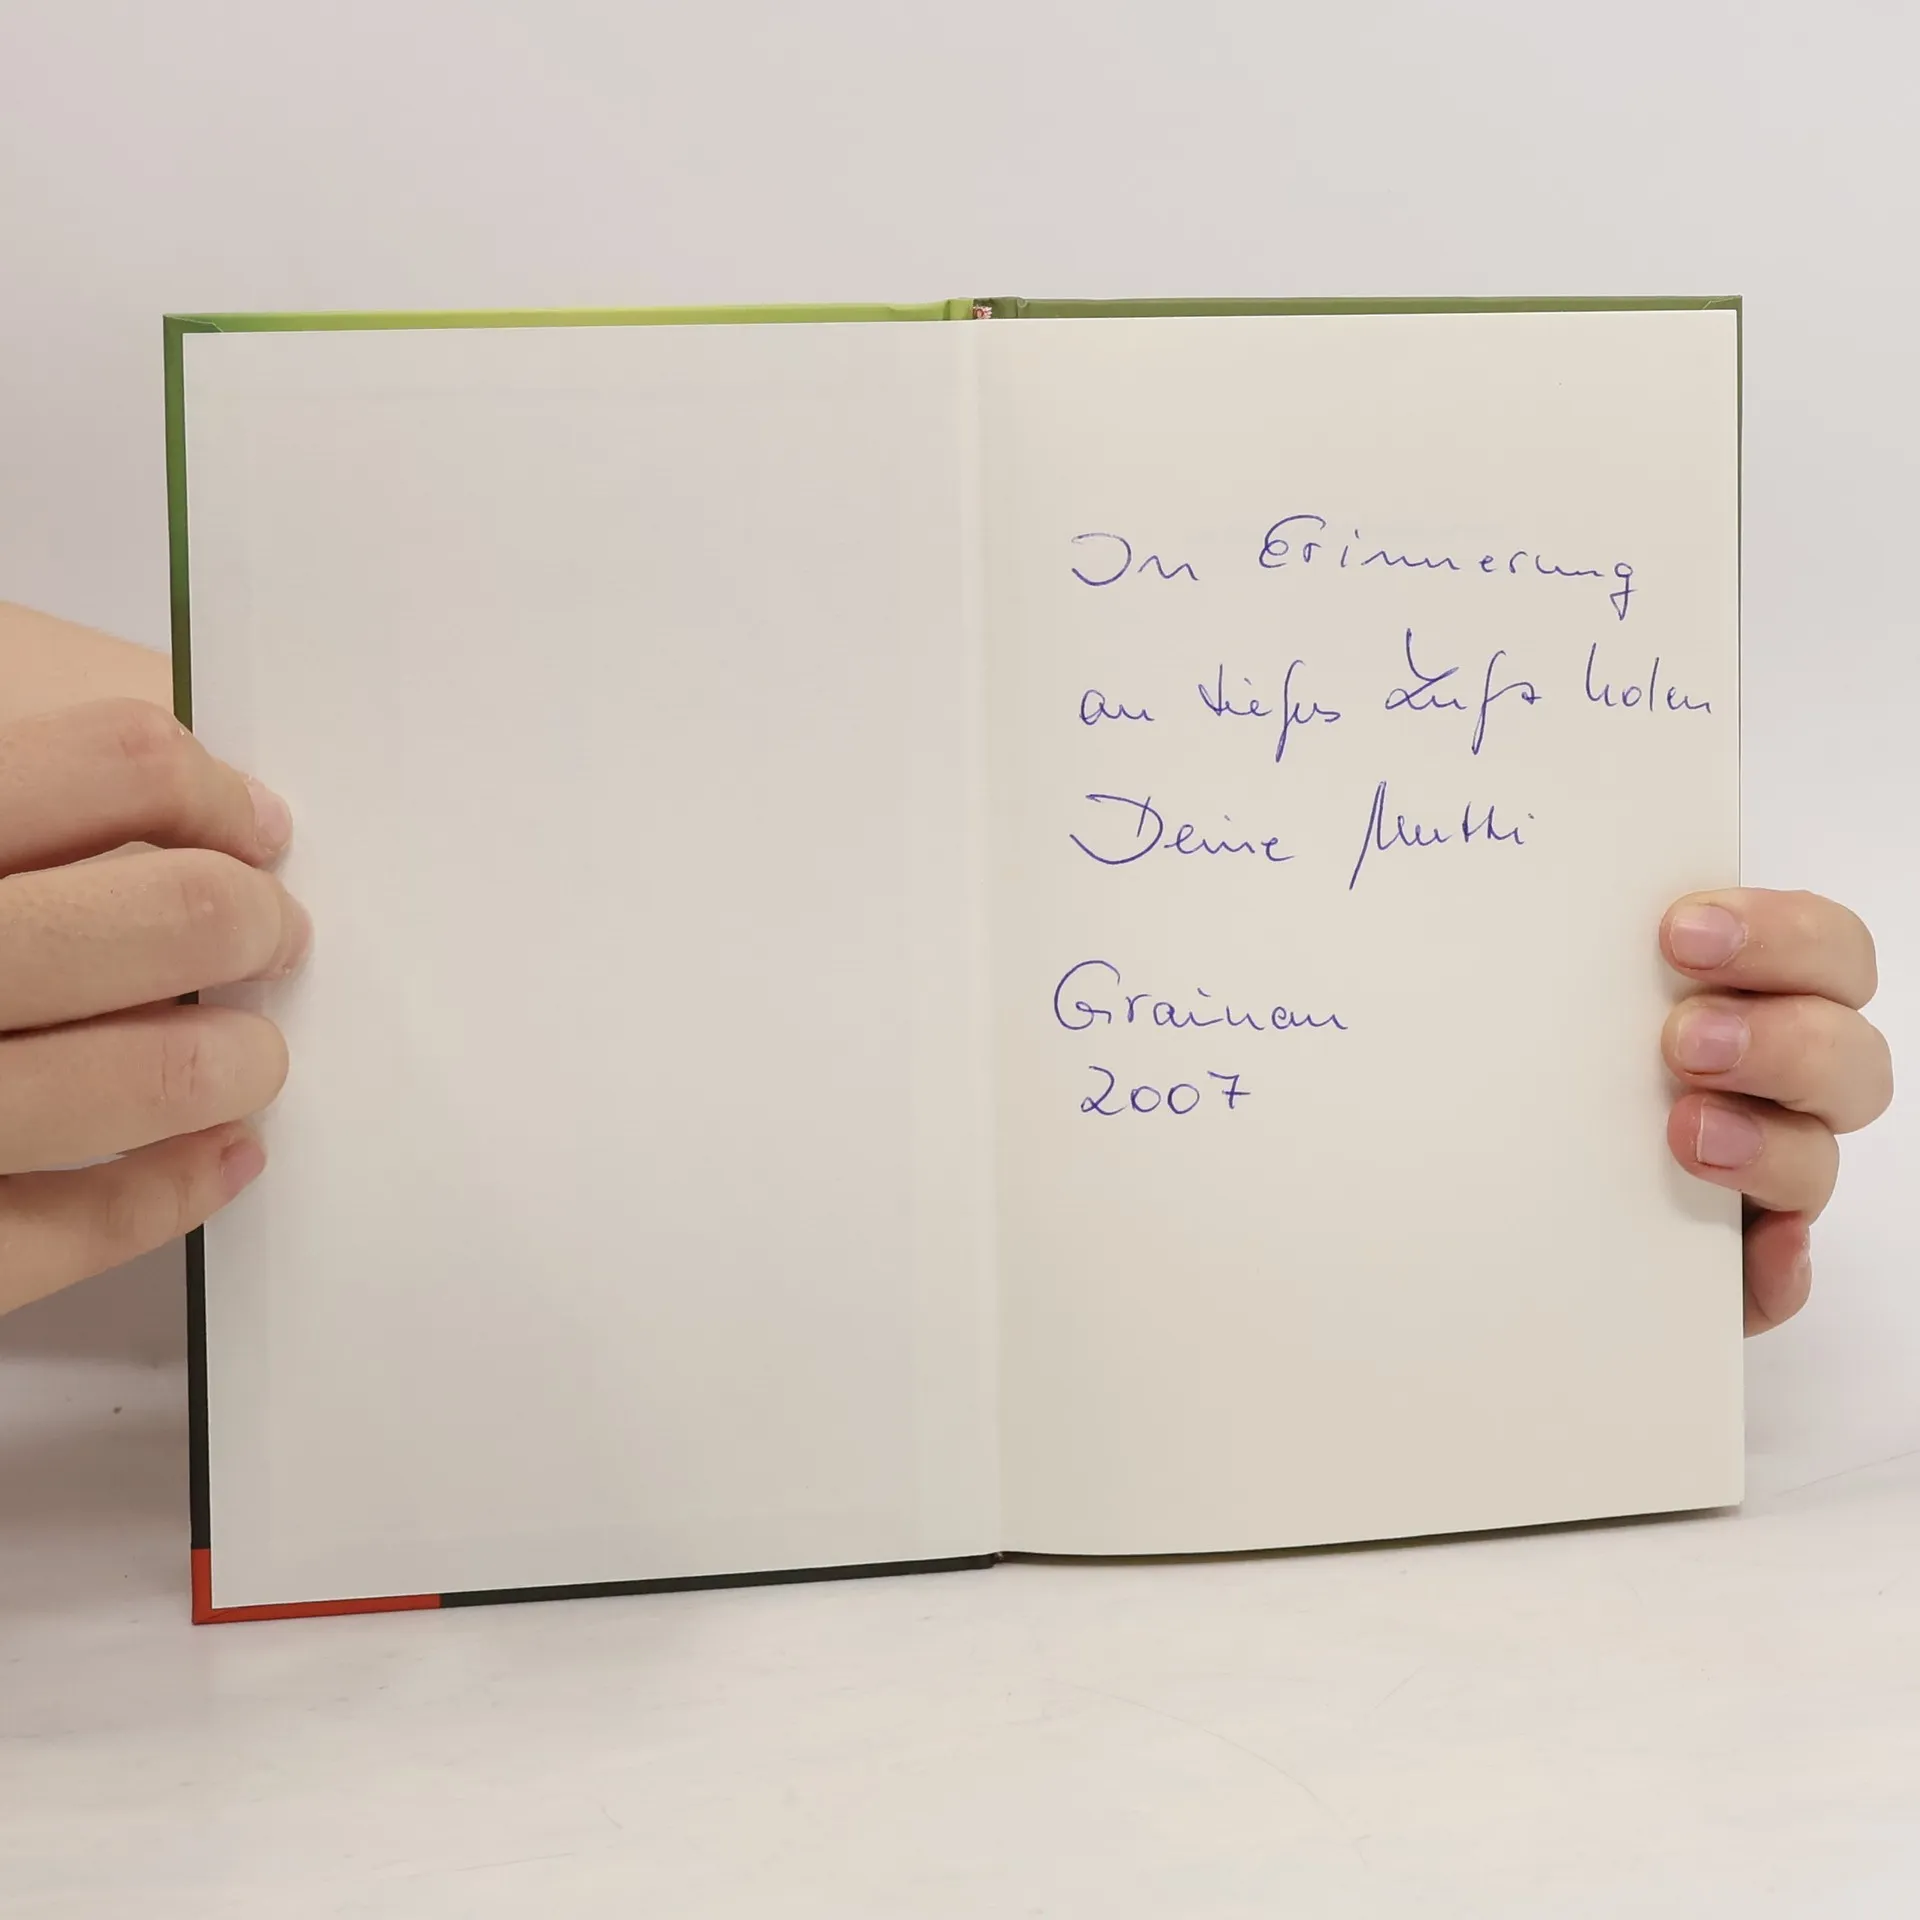 In Erinnerung
an tiefes Luft holen
Deine Mutti
Grainau
2007